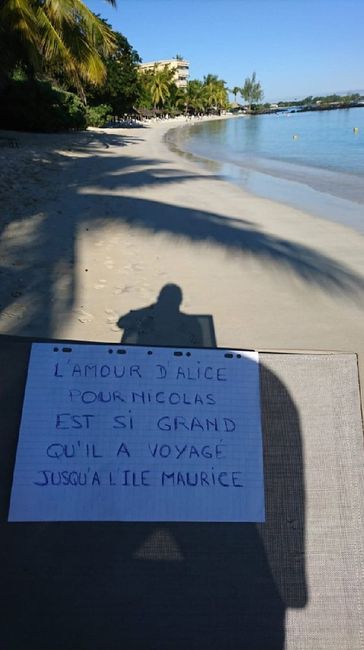 L'AMOUR D'ALICE
POUR NICOLAS
EST SI GRAND
QU'IL A VOYAGÉ
JUSQU'A L'ILE MAURICE